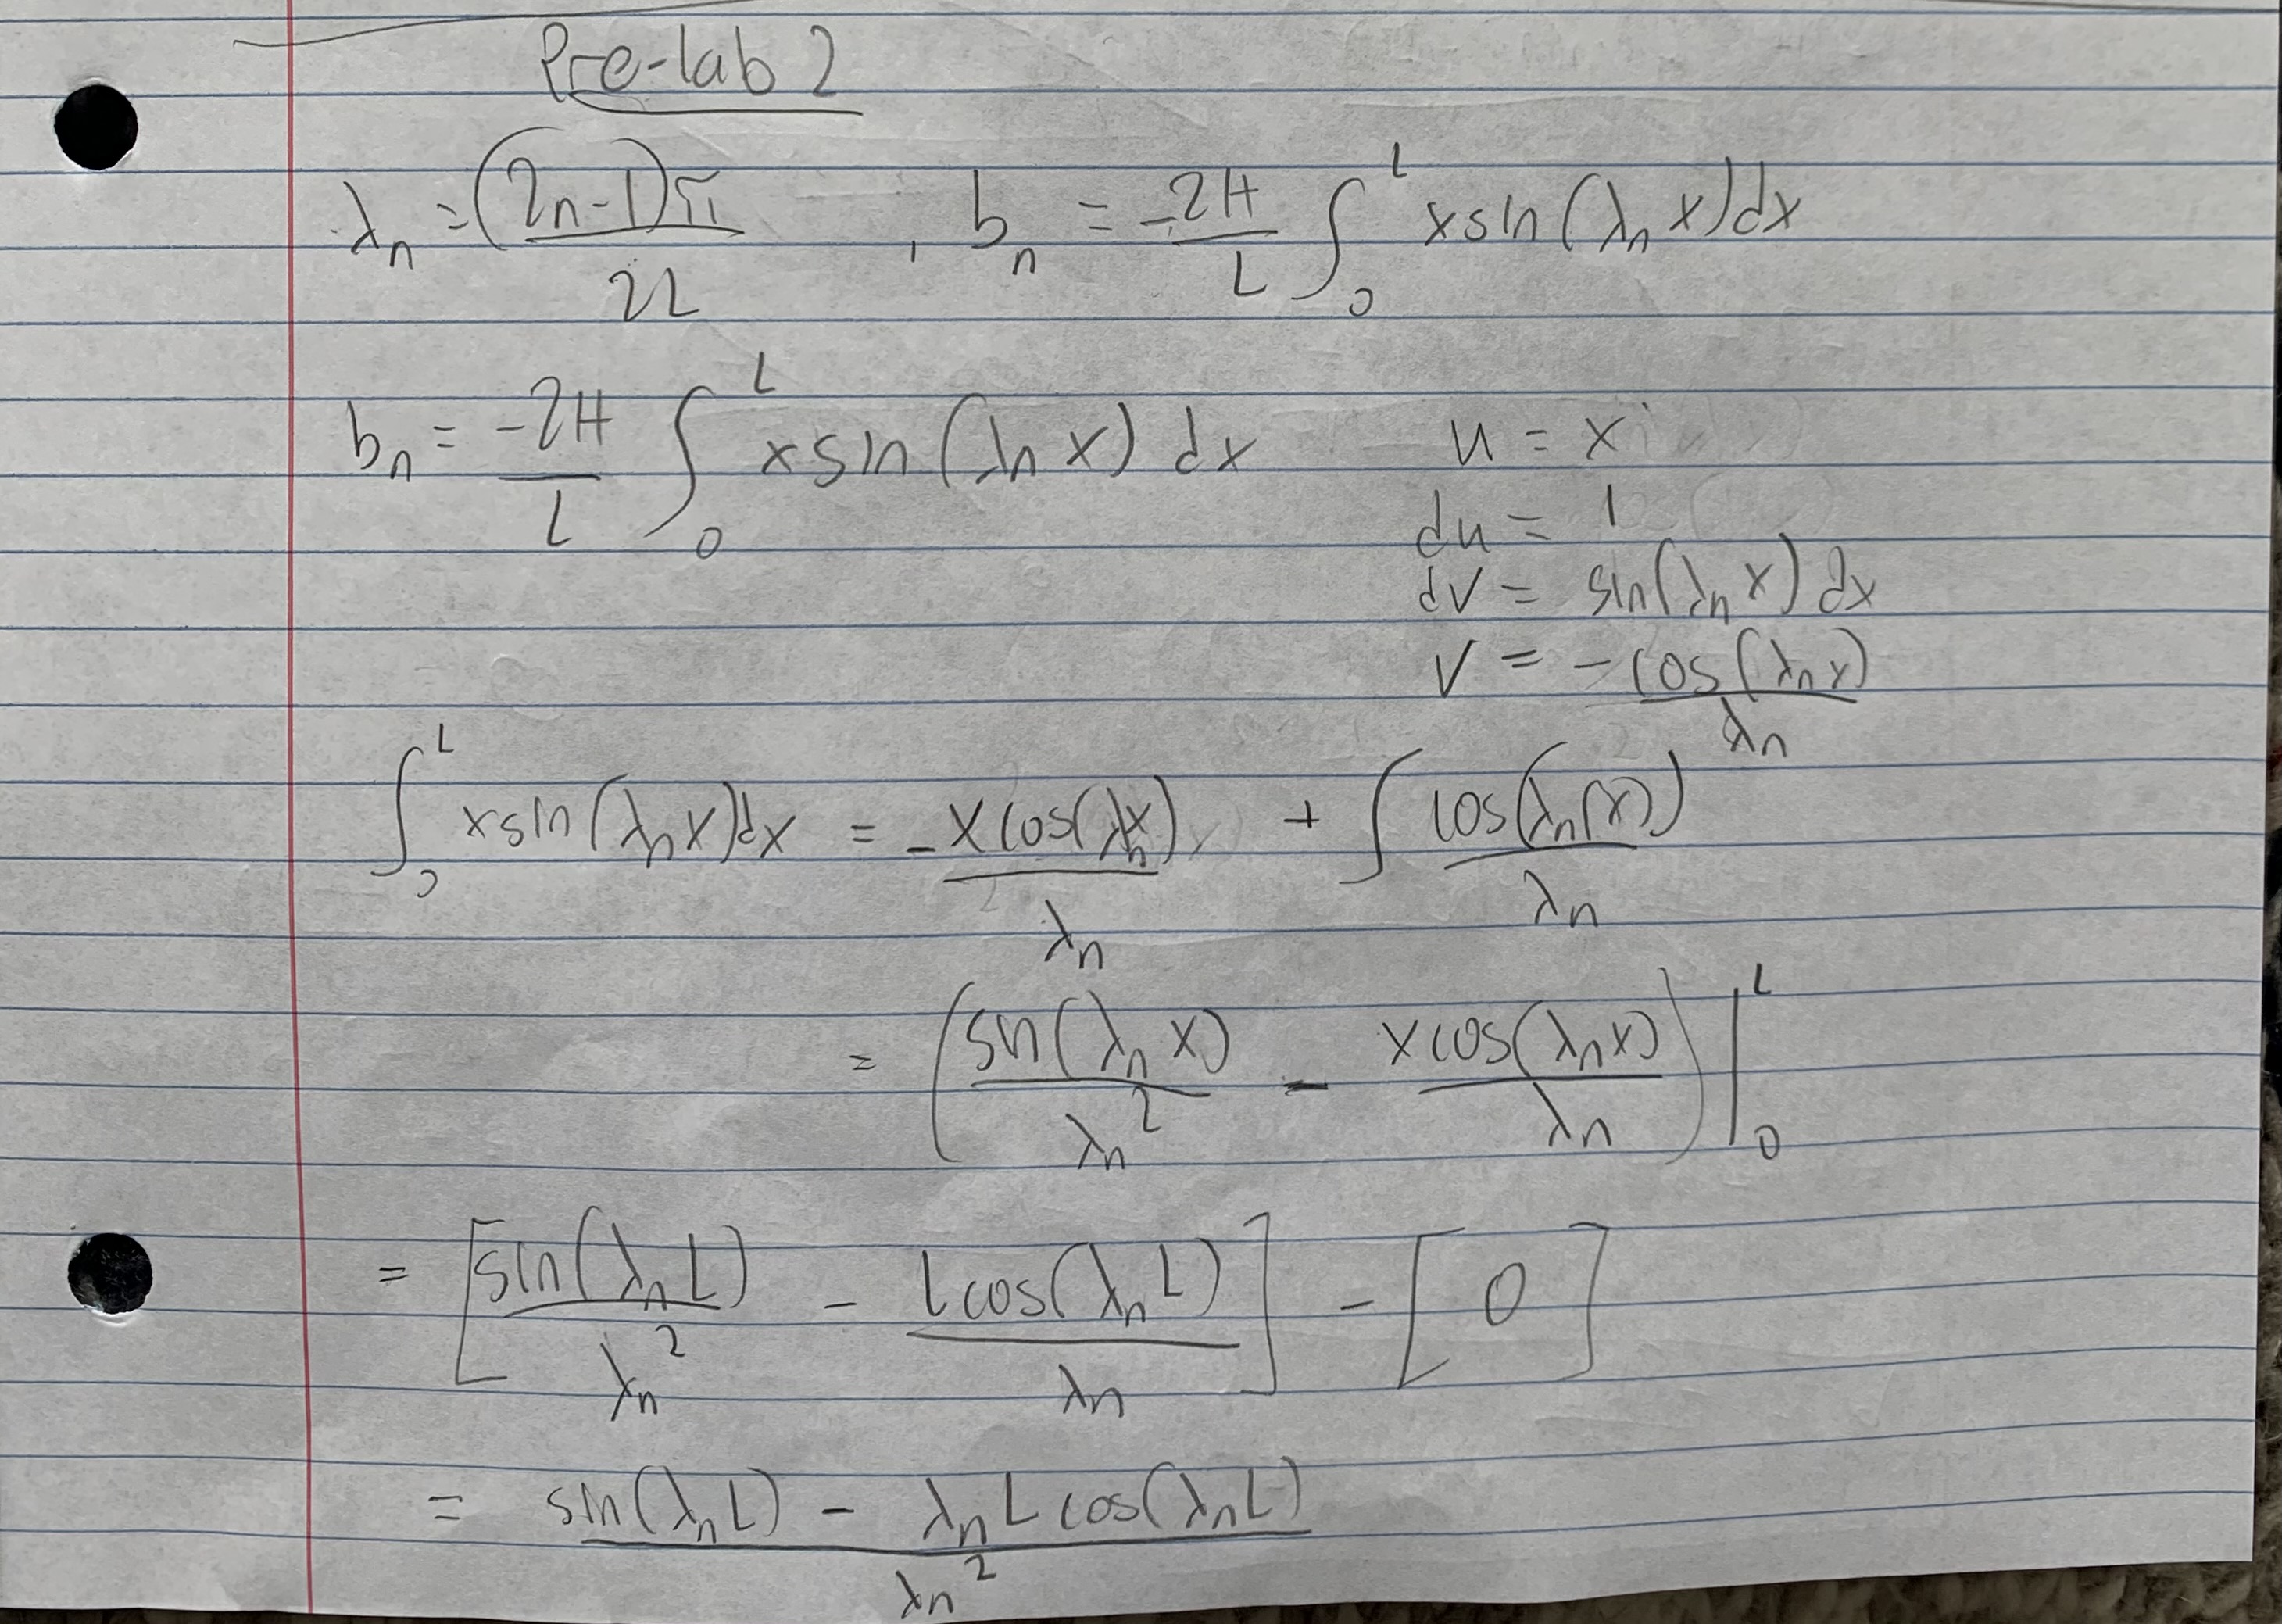 Pre-lab 2
λn = (2n-1)π / 2L , bn = -2H / L ∫₀ᴸ x sin(λn x)dx
bn = -2H / L ∫₀ᴸ x sin(λn x) dx u = x
du = 1
dv = sin(λn x) dx
v = -cos(λn x) / λn
∫₀ᴸ x sin(λn x)dx = -x cos(λn x) / λn + ∫ cos(λn(x)) / λn
= (sin(λn x) / λn² - x cos(λn x) / λn) |₀ᴸ
= [sin(λn L) / λn² - L cos(λn L) / λn] - [0]
= sin(λn L) - λn L cos(λn L) / λn²